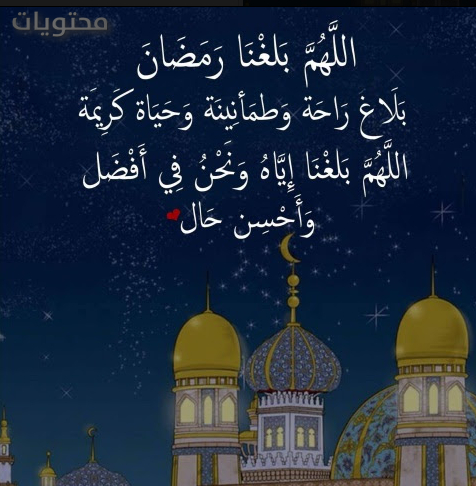 محتويات
اللَّهُمَّ بَلغْنَا رَمَضَانَ
بَلَاغ رَاحَة وَطمَأنِينَة وَحَيَاة كَرِيمَة
اللَّهُمَّ بَلغْنَا إِيَّاهُ وَنَحْنُ فِي أَفْضَل
وَأَحْسِن حَال❤